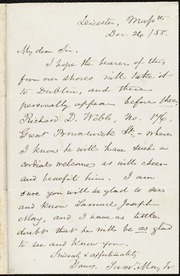 Leicester, Mass.
Dec. 26 / 58.
My dear Sir,
I hope the bearer of this,
from our shores will take it
to Dublin, and there
personally appear before thee,
Richard D. Webb, no. 176,
Great Brunswick St. - where
I know he will have such a
cordial welcome as will cheer
and benefit him. I am
sure you will be glad to see
and know Samuel Joseph
May, and I have as little
doubt that he will be as glad
to see and know you.
Sincerely & affectionately,
Yours, Sam. May, Jr.